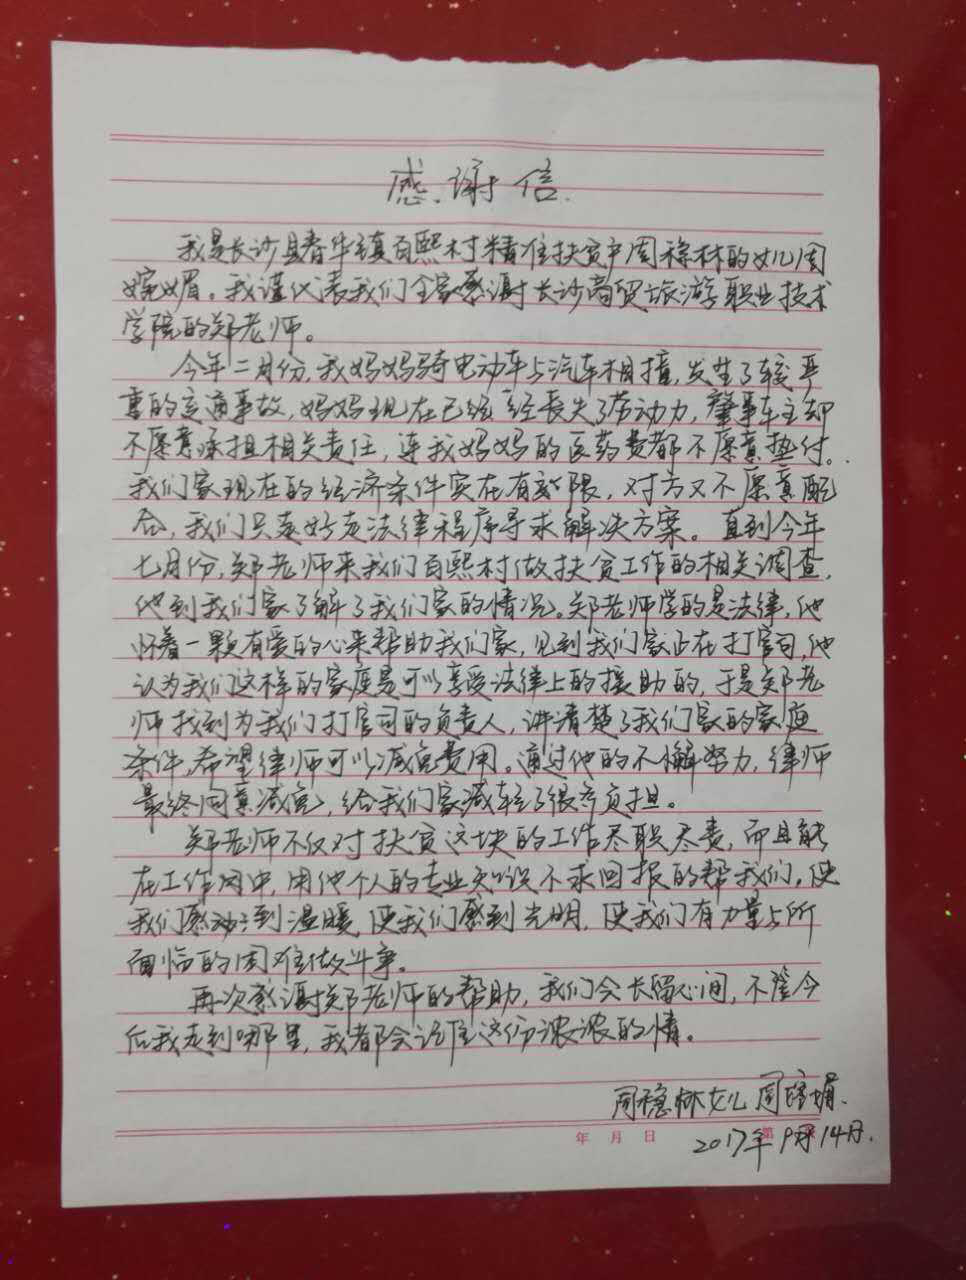 感谢信
我是长沙县春华镇百熙村精准扶贫户周稳林的女儿周
媚。我谨代表我们全家感谢长沙商贸旅游职业技术
学院的郑老师。
今年二月份,我妈妈骑电动车与汽车相撞,发生了较严
重的交通事故,妈妈现在已经经丧失了劳动力,肇事车主却
不愿意承担相关责任,连我妈妈的医药费都不愿意垫付。
我们家现在的经济条件实在有限,对方又不愿意配
合,我们只是好走法律程序寻求解决方案。直到今年
七月份,郑老师来我们百熙村做扶贫工作的相关调查,
他到我们家了解了我们家的情况。郑老师学的是法律,他
怀着一颗有爱的心来帮助我们家,见到我们家正在打官司,他
认为我们这样的家庭是可以享受法律上的援助的,于是郑老
师找到为我们打官司的负责人,讲清楚了我们家的家庭
条件,希望律师可以减免费用。通过他的不懈努力,律师
最终同意减免,给我们家减轻了很多负担。
郑老师不仅对扶贫这块的工作尽职尽责,而且能
在工作闲中,用他个人的专业知识不求回报的帮我们,使
我们感动到温暖,使我们感到光明,使我们有力量与所
面临的困难做斗争。
再次感谢郑老师的帮助,我们会长留心间,不管今
后我走到哪里,我都会记住这份浓浓的情。
周稳林女儿 周媚
年 月 日 第
2017年9月14日.